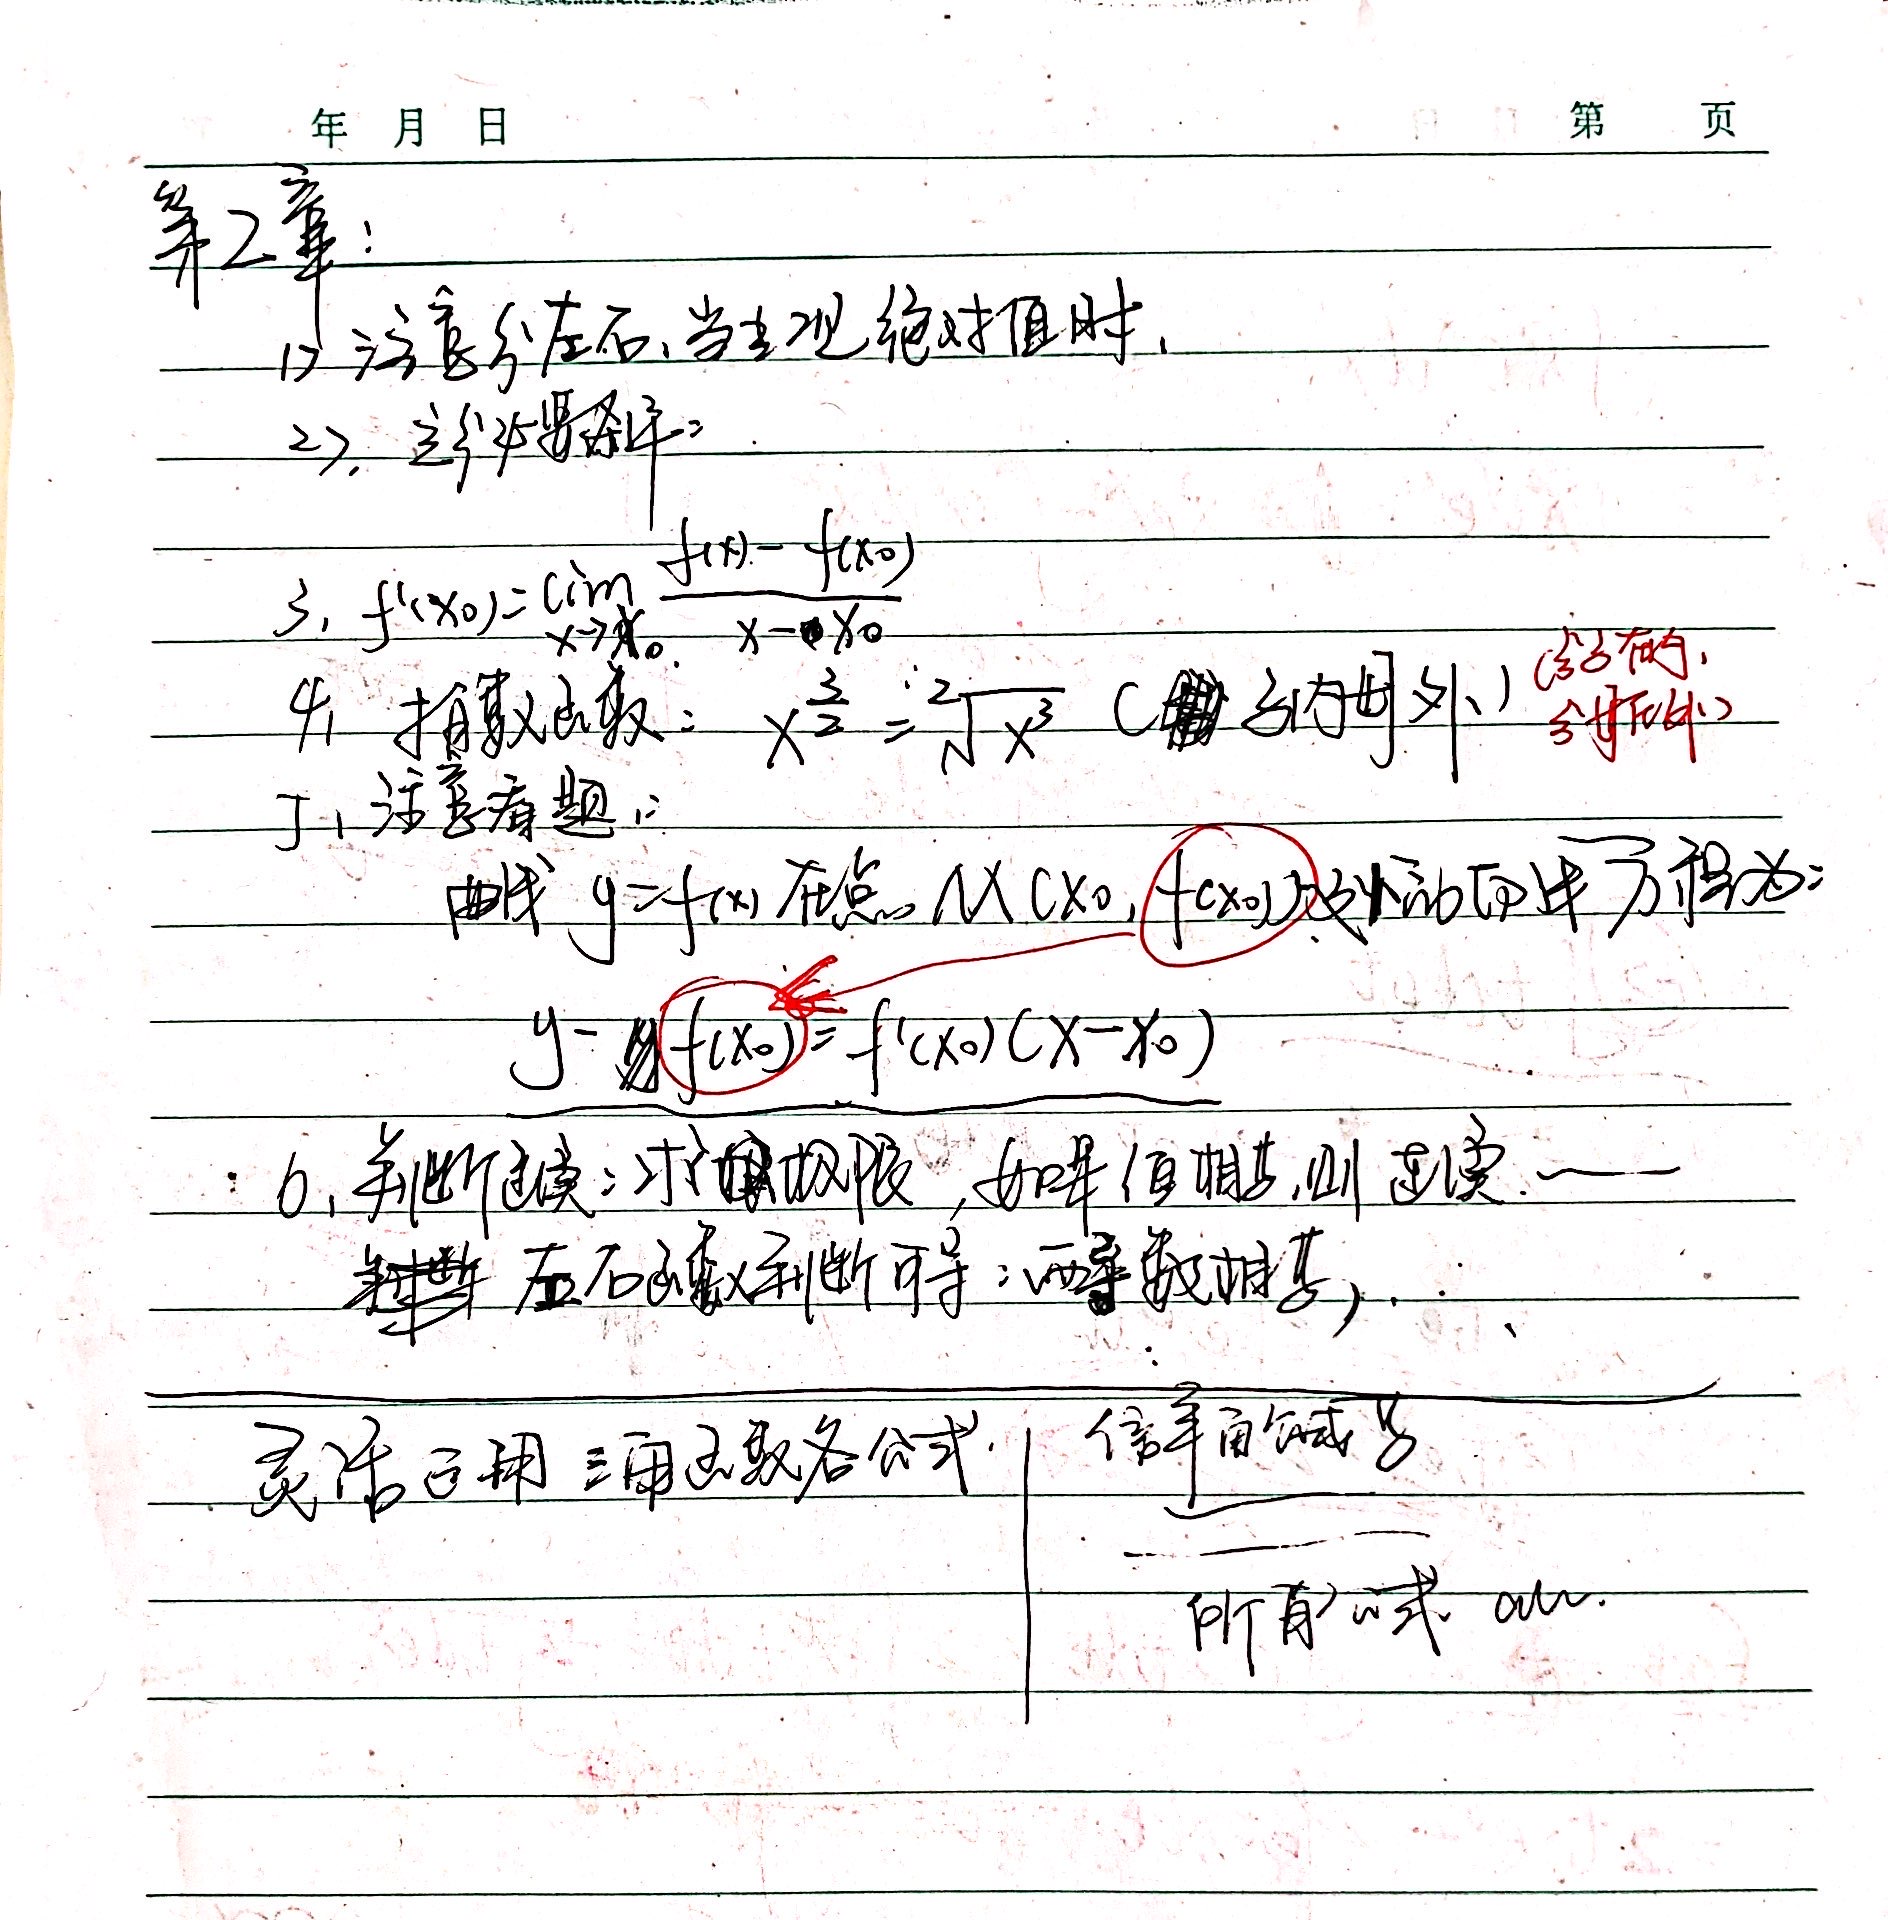 年 月 日 第 页
第2章:
1> 注意分左右、当出现绝对值时、
2>. 充分必要条件:
3、f'(x₀)=lim x→x₀ (f(x)-f(x₀))/(x-x₀)
4、指数函数: x^(3/2) = ²√x³ (子内母外、) (分子在内、
分母在外、)
5、注意看题:
曲线 y=f(x) 在点 M(x₀, f(x₀)) 处的切线方程为:
y-f(x₀)=f'(x₀)(x-x₀)
6、判断连续:求极限,如果值相等,则连续.
左右函数判断可导:两导数相等,
灵活运用三角函数各公式. 倍半角、
所有公式. all.